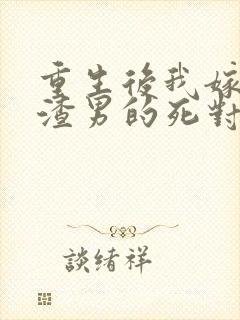 重生後我嫁
渣男的死對
談緒祥